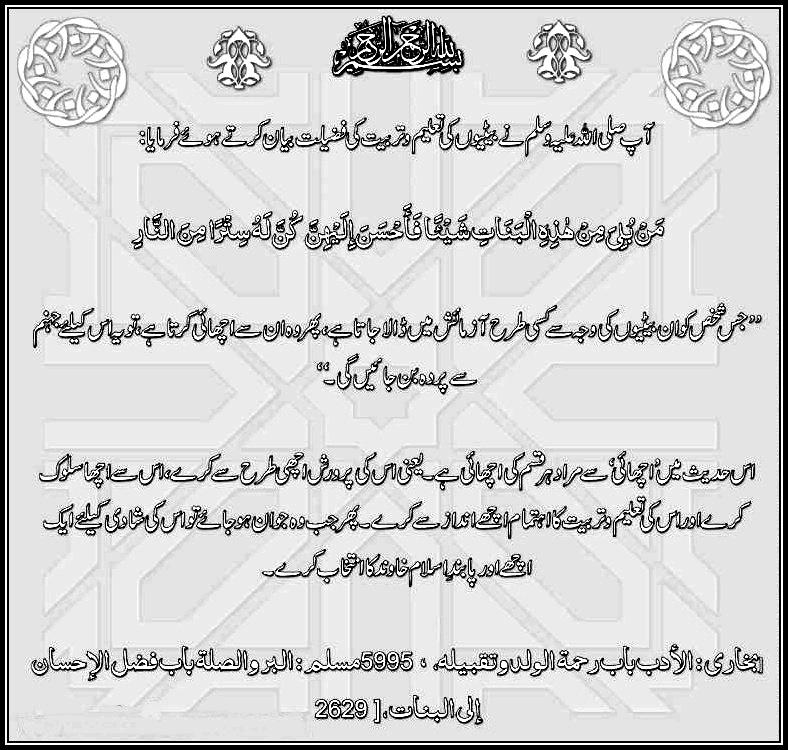 بسم الله الرحمن الرحيم
آپ صلی اللہ علیہ وسلم نے بیٹیوں کی تعلیم وتربیت کی فضیلت بیان کرتے ہوئے فرمایا:
مَنْ بُلِیَ مِنْ هٰذِهِ الْبَنَاتِ شَیْئًا فَأَحْسَنَ إِلَیْهِنَّ کُنَّ لَهُ سِتْرًا مِنَ النَّارِ
’’جس شخص کو ان بیٹیوں کی وجہ سے کسی طرح آزمائش میں ڈالا جاتا ہے، پھر وہ ان سے اچھائی کرتا ہے، تو یہ اس کیلئے جہنم
سے پردہ بن جائیں گی۔‘‘
اس حدیث میں ’اچھائی‘ سے مراد ہر قسم کی اچھائی ہے۔ یعنی اس کی پرورش اچھی طرح سے کرے، اس سے اچھا سلوک
کرے اور اس کی تعلیم وتربیت کا اہتمام اچھے انداز سے کرے۔ پھر جب وہ جوان ہوجائے تو اس کی شادی کیلئے ایک
اچھے اور پابندِ اسلام خاوند کا انتخاب کرے۔
[بخاری: الأدب باب رحمة الولد وتقبیله، ، 5995مسلم: البر والصلة باب فضل الإحسان
إلی البنات، [ 2629